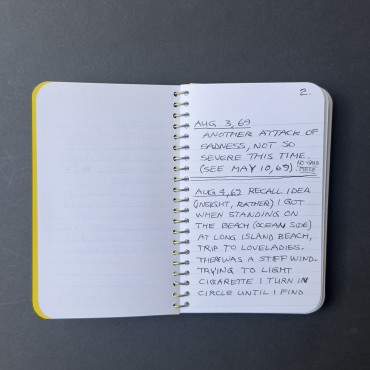 2.
AUG 3, 69
ANOTHER ATTACK OF
SADNESS, NOT SO
SEVERE THIS TIME.
(SEE MAY 10, 69).
AUG 4, 69 RECALL IDEA
(INSIGHT, RATHER) I GOT
WHEN STANDING ON
THE BEACH (OCEAN SIDE)
AT LONG ISLAND BEACH,
TRIP TO LOVELADIES.
THERE WAS A STIFF WIND.
TRYING TO LIGHT
CIGARETTE I TURN IN
CIRCLE UNTIL I FIND